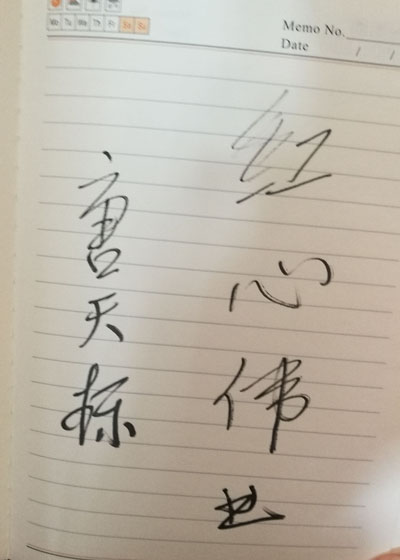 Mo Tu We Th Fr Sa Su
Memo No.
Date / /
红心伟业
唐天标